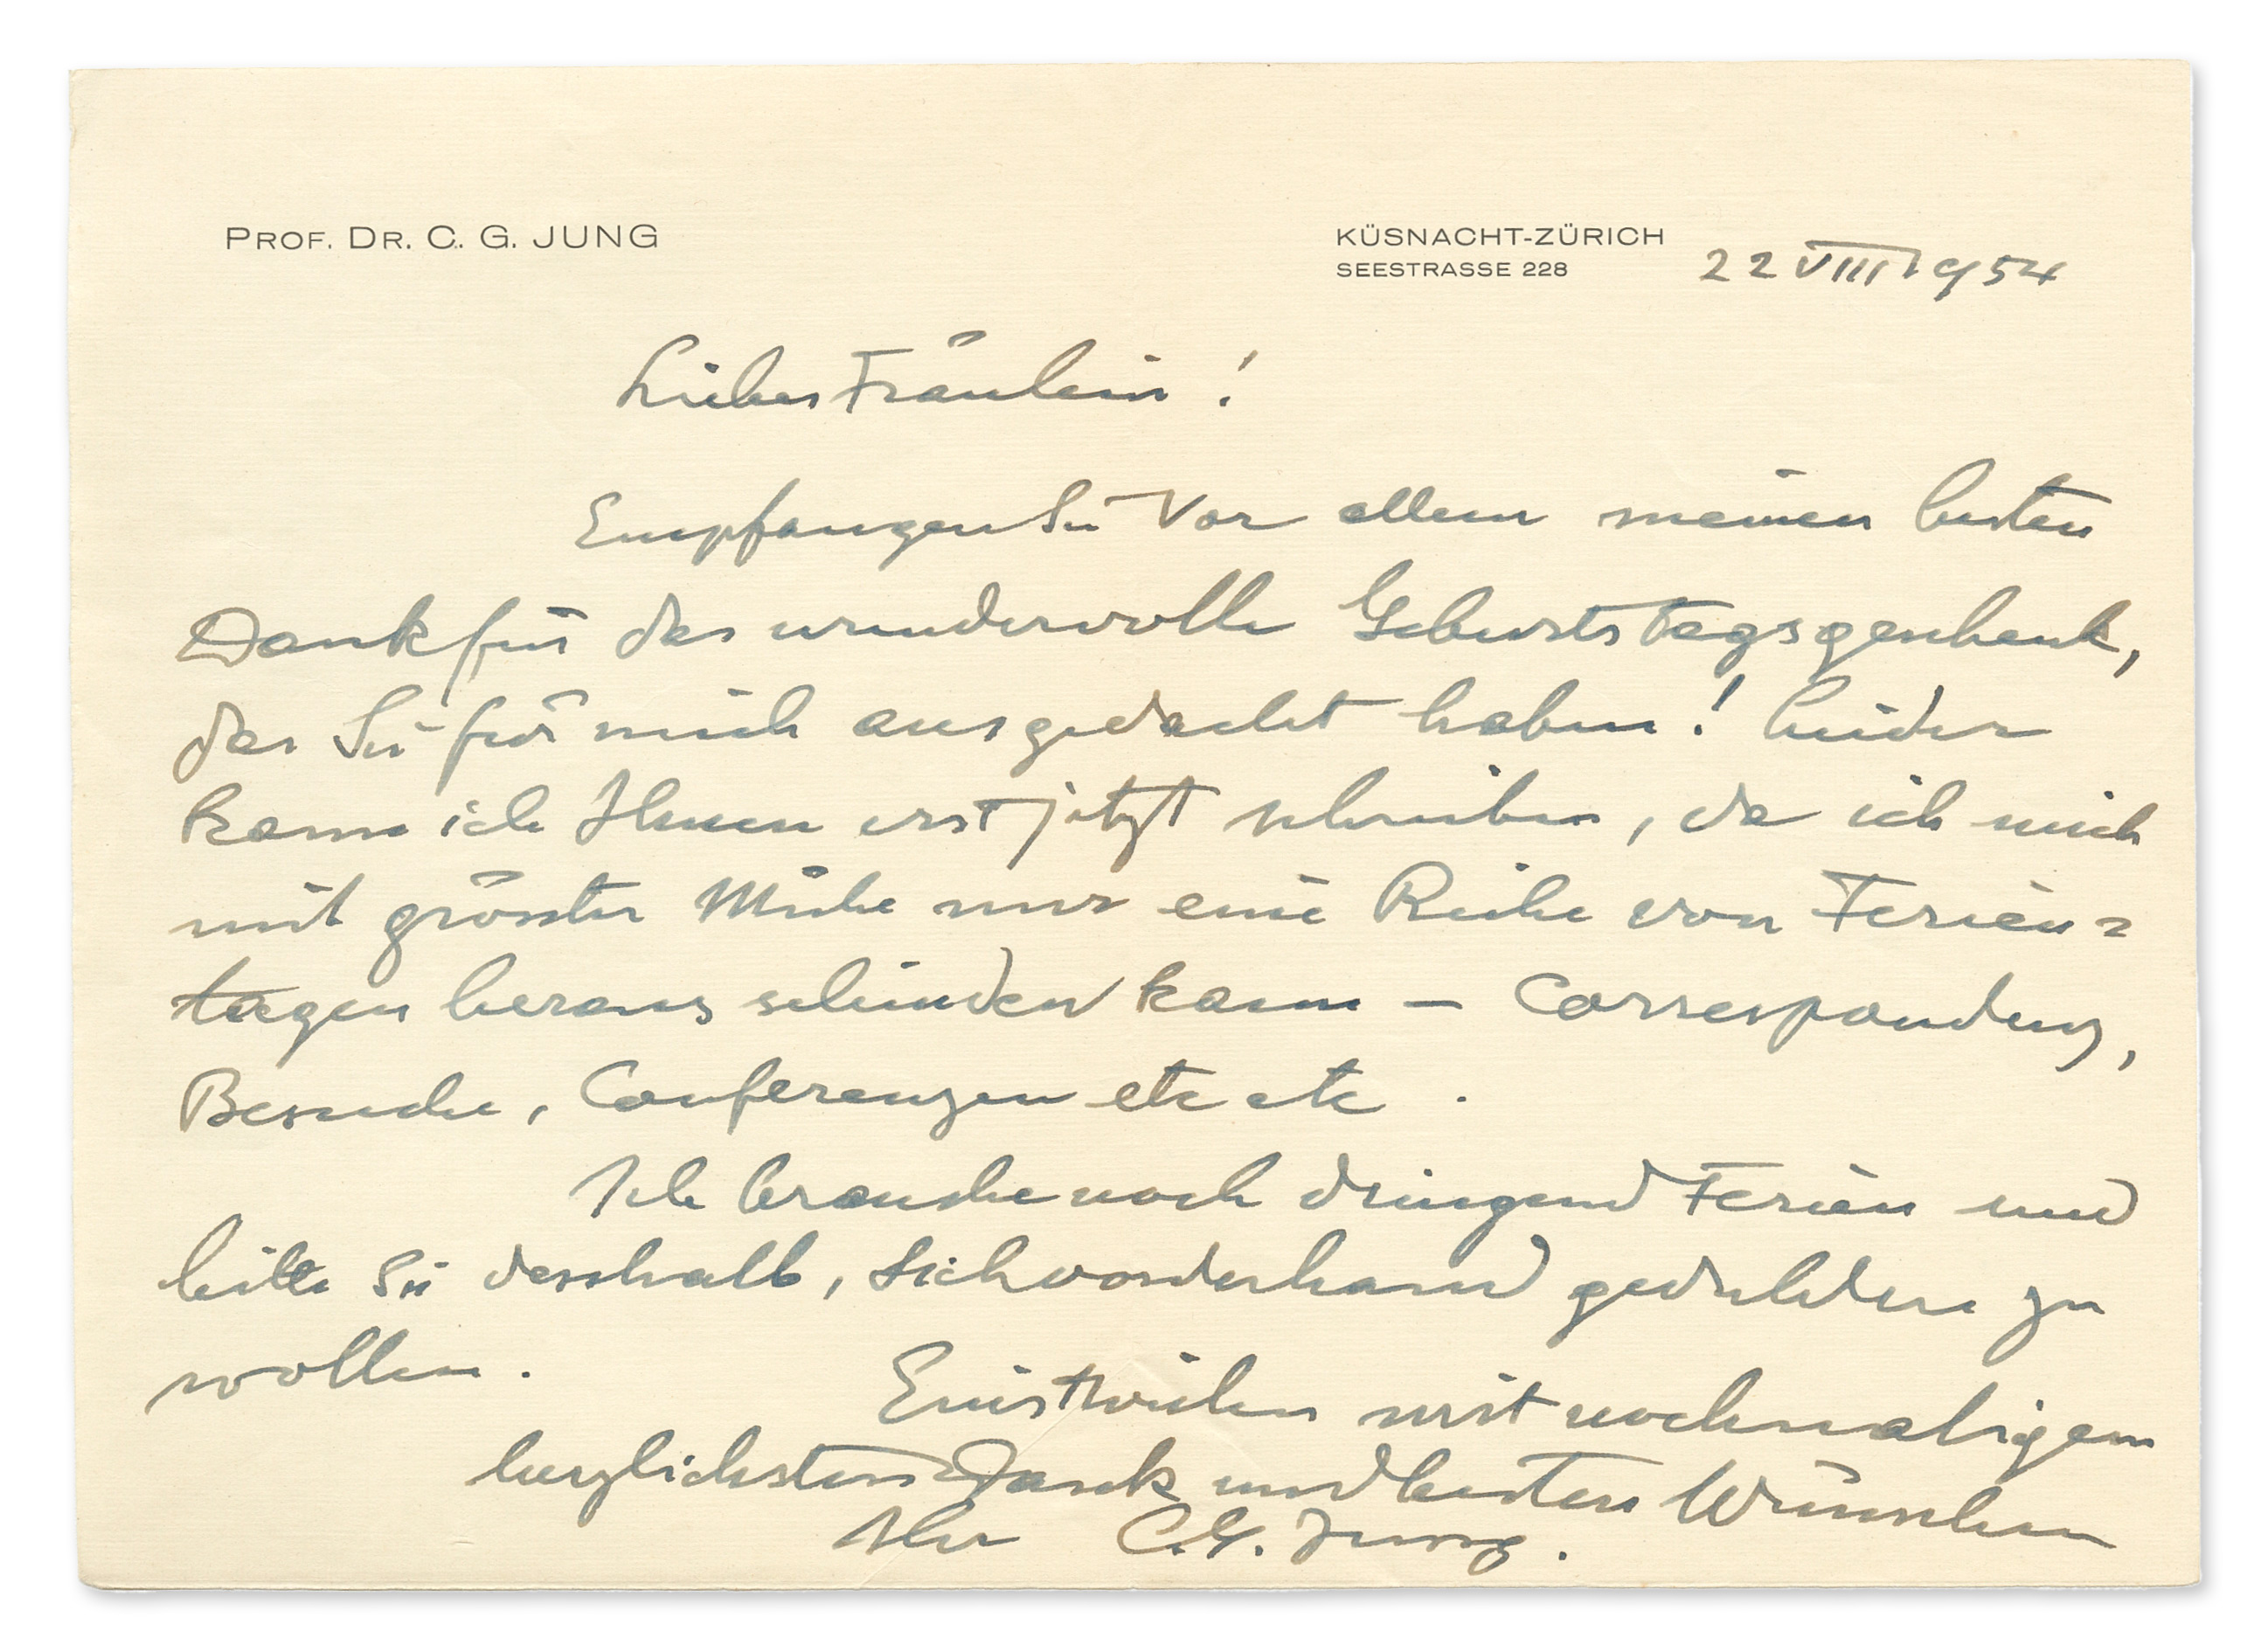 PROF. DR. C. G. JUNG
KÜSNACHT-ZÜRICH
SEESTRASSE 228
22 VIII 1954
Liebes Fräulein!
Empfangen Sie vor allem meinen besten
Dank für das wundervolle Geburtstagsgeschenk,
das Sie für mich ausgedacht haben! Leider
kann ich Ihnen erst jetzt schreiben, da ich mich
mit grösster Mühe nur eine Reihe von Ferien=
tagen heraus schinden kann – Correspondenz,
Besuche, Conferenzen etc etc.
Ich brauche noch dringend Ferien und
bitte Sie desshalb, sich vorderhand gedulden zu
wollen.
Einstweilen mit nochmaligem
herzlichsten Dank und besten Wünschen
Ihr C.G. Jung.